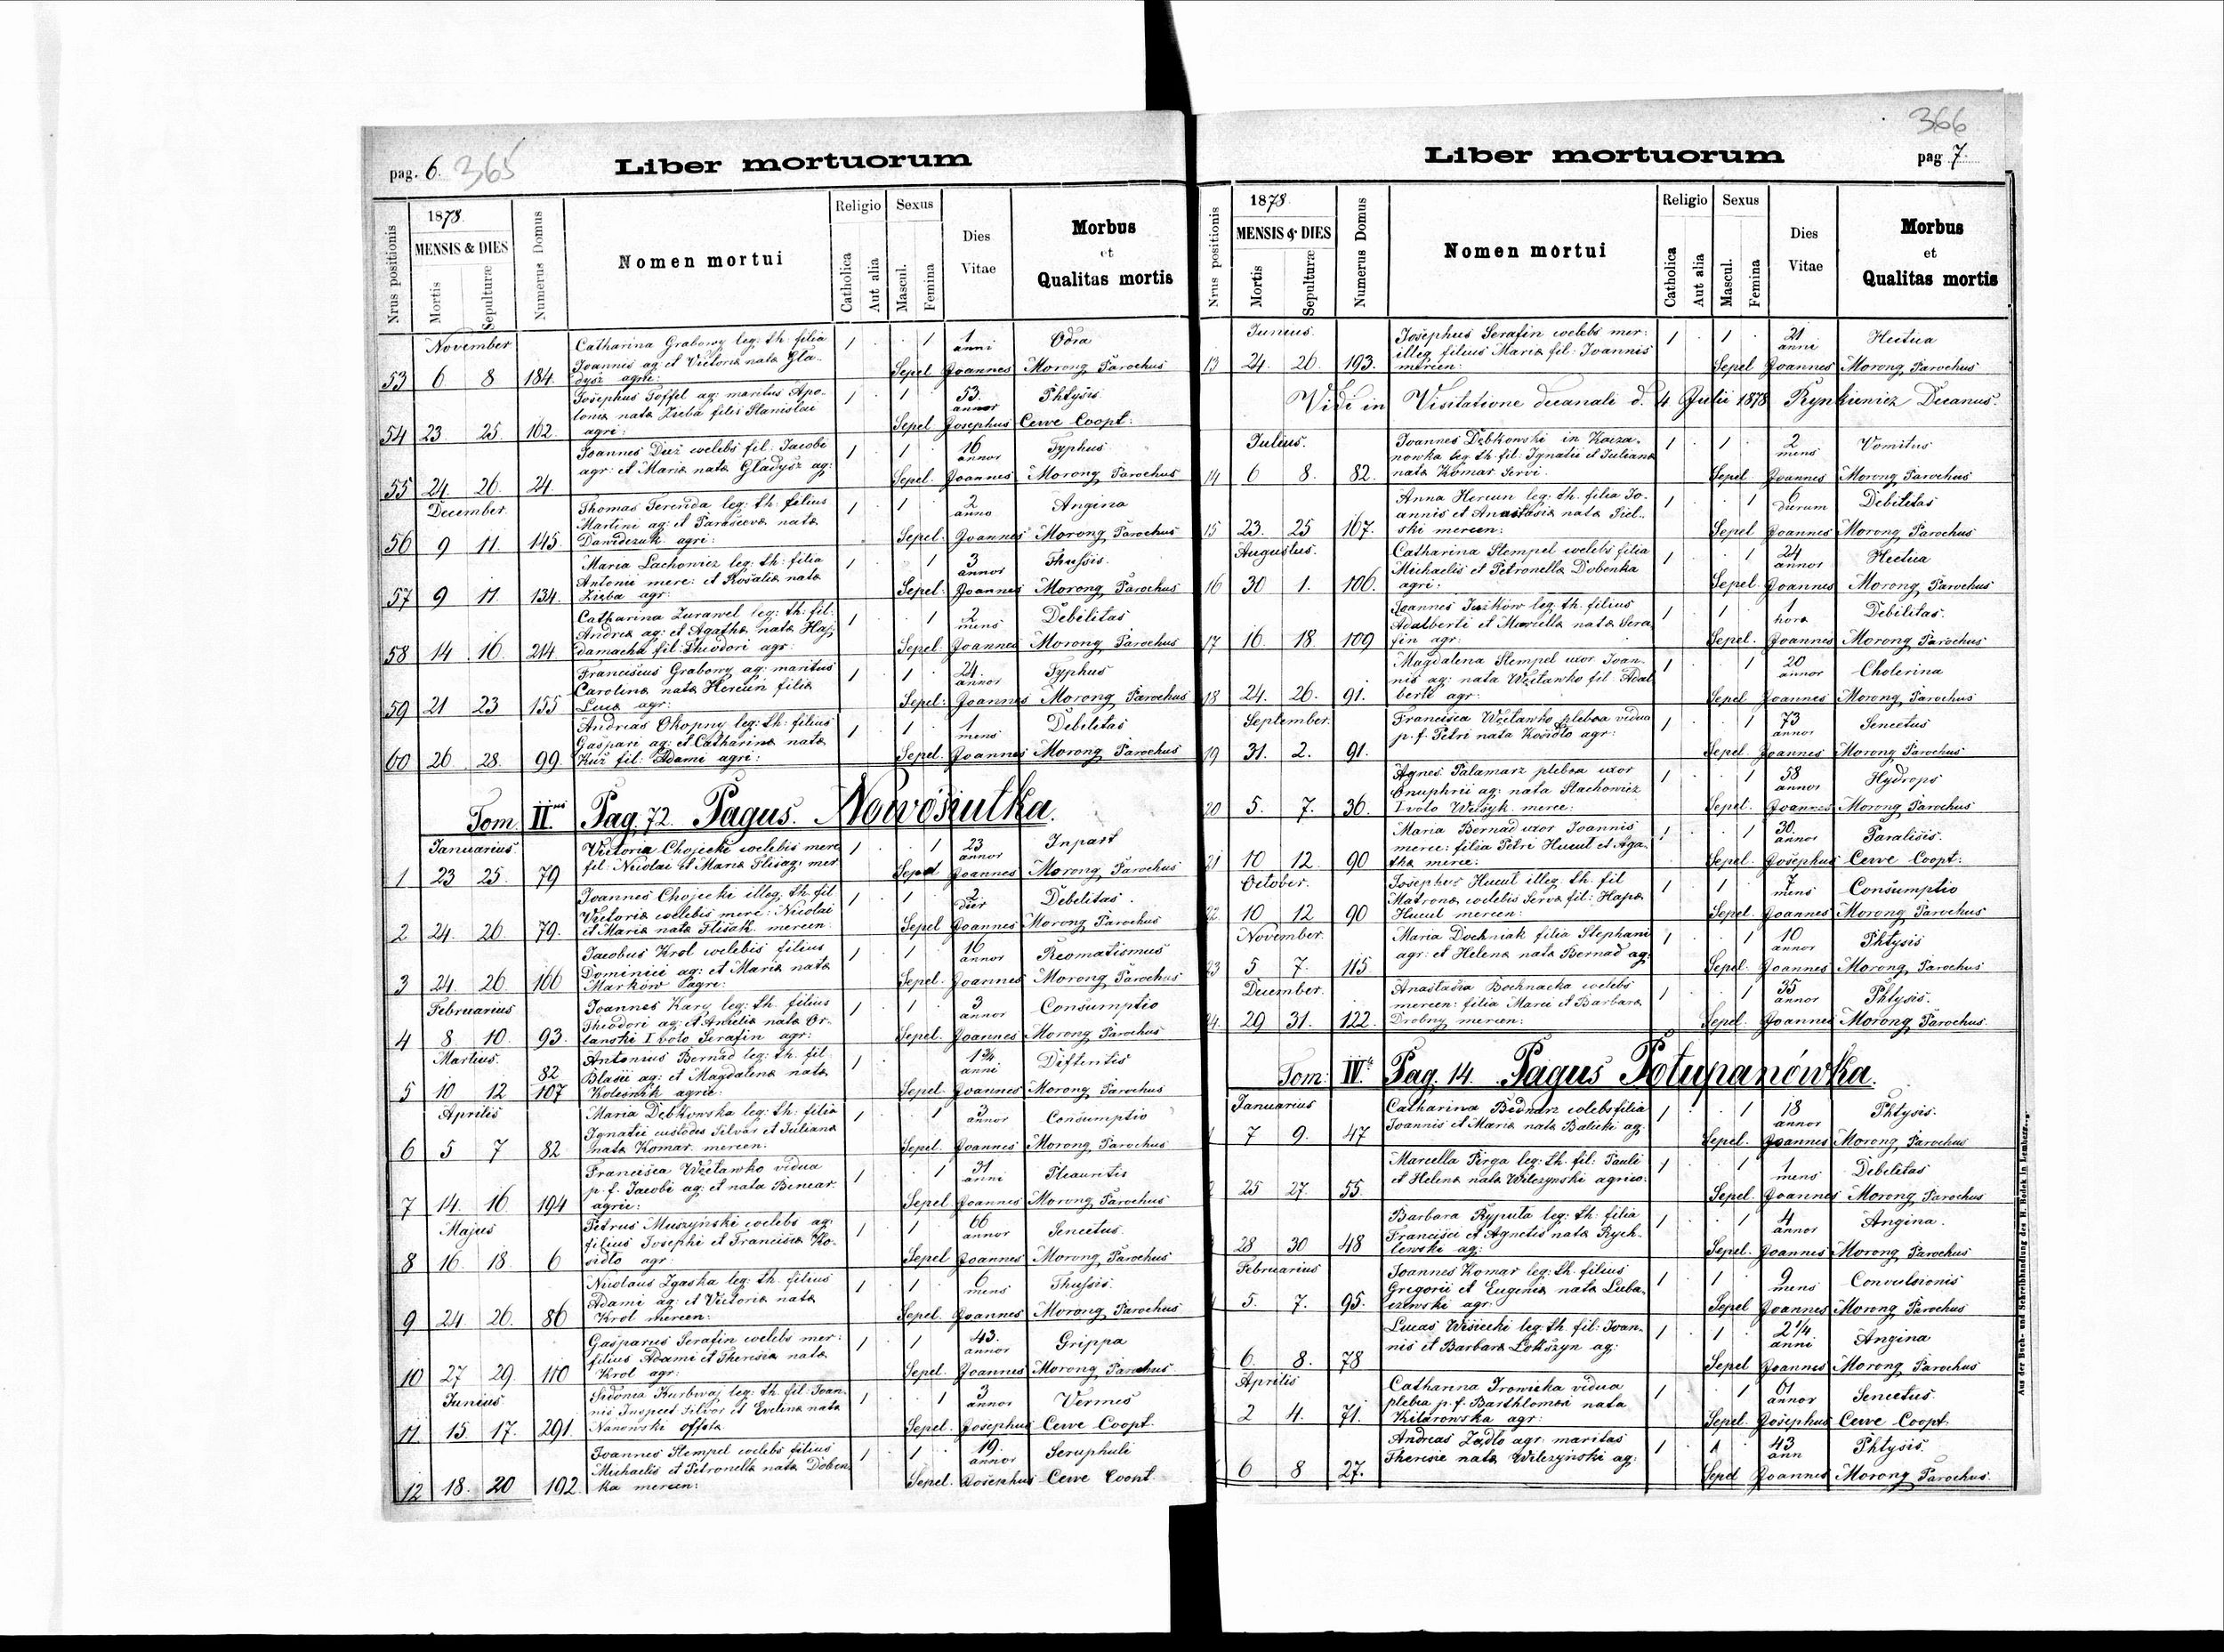 pag. 6. 365
Liber mortuorum
Nrus positionis
1878.
MENSIS & DIES
Mortis
Sepulturæ
Numerus Domus
Nomen mortui
Religio
Catholica
Aut alia
Sexus
Mascul.
Femina
Dies
Vitae
Morbus
et
Qualitas mortis
November
Catharina Grabowy leg: th: filia 1 1 1 anni Odra
Joannis ag: et Victoriæ natæ Gła-
53 6 8 184. dysz agri: Sepel Joannes Morong Parochus
Josephus Toffel ag: maritus Apo- 1 1 53. annor Phtysis
loniæ natæ Zięba filis Stanislai
54 23 25. 162 agri: Sepel Josephus Cewe Coopt:
Joannes Duż coelebs fil: Jacobi 1 1 16 annor Typhus
agr: et Mariæ natæ Gładysz ag:
55 24. 26. 24. Sepel. Joannes Morong Parochus
December.
Thomas Ferenda leg: th: filius 1 1 2 anno Angina
Martini ag: et Parascevæ natæ
56 9 11. 145. Dawidczuk agri: Sepel: Joannes Morong Parochus
Maria Lachowicz leg: th: filia 1 1 3 annor Thussis.
Antonii merc: et Rosaliæ natæ
57 9 11. 134. Zięba agr: Sepel: Joannes Morong Parochus
Catharina Zurawel leg: th: fil: 1 1 2 mens Debilitas
Andreæ ag: et Agathæ natæ Haj
58 14 16. 214 damacha fil: Theodori agr: Sepel: Joannes Morong Parochus
Franciscus Grabowy ag: maritus 1 1 24. annor Typhus
Carolinæ natæ Hercun filia
59 21 23 155 Lucæ agr: Sepel: Joannes Morong Parochus
Andreas Okopny leg: th: filius 1 1 1 mens Debilitas
Gaspari ag: et Catharinæ natæ
60 26 28. 99. Kuż fil: Adami agri: Sepel: Joannes Morong Parochus
Tom II. Pag. 72. Pagus. Nowosiułka.
Januarius.
Victoria Chojecki coelebis merc 1 1 23 annor Inpart
fil: Nicolai et Mariæ Flisag: mer
1 23 25. 79 Sepel Joannes Morong Parochus
Joannes Chojecki illeg. th. fil 1 1 2 dier Debilitas.
Victoriæ coelebis merc: Nicolai
2 24. 26. 79. et Mariæ natæ Flisak mercen: Sepel Joannes Morong Parochus
Jacobus Krol coelebis filius 1 1 16 annor Reomatismus
Dominici ag: et Mariæ natæ
3 24. 26. 166 Markow agri: Sepel. Joannes Morong Parochus
Februarius
Joannes Kary leg: th. filius 1 1 3 annor Consumptio
Theodori ag: et Ameliæ natæ Or-
4 8 10. 93. lanski I voto Serafin agr: Sepel Joannes Morong Parochus
Martius.
Antonius Bernad leg: th. fil 1 1 ¾ anni Difteritis
82 Blasii ag: et Magdalenæ natæ
5 10 12 107 agric: Sepel. Joannes Morong Parochus
Aprilis
Maria Dębkowska leg: th: filia 1 1 3 annor Consumptio
Ignatii custodis silvar et Julianæ
6 5 7 82 natæ Komar. mercen: Sepel. Joannes Morong Parochus
Francisca Węcławko vidua 1 1 31 anni Pleauritis
p. f. Jacobi ag: et nata Benear
7 14. 16. 194 agric: Sepel Joannes Morong Parochus
Majus
Petrus Muszyński coelebs ag: 1 1 66 annor Senectus.
filius Josephi et Franciscæ Ko-
8 16. 18. 6 sidło agr Sepel Joannes Morong Parochus
Nicolaus Zgaska leg: th. filius 1 1 6 mens Thussis.
Adami ag: et Victoriæ natæ
9 24 26. 86 Krol mercen: Sepel Joannes Morong Parochus
Gasparus Serafin coelebs mer: 1 1 43. annor Grippa
filius Adami et Theresiæ natæ
10 27 29. 110 Krol agr: Sepel. Joannes Morong Parochus
Junius.
Sidonia Kurbwaj leg: th. fil: Joan- 1 1 3 annor Vermes
nis Inspect silvar et Evelinæ natæ
11. 15. 17. 291. Nanowski Sepel. Josephus Cewe Coopt.
Joannes Stempel coelebs filius 1 1 19. annor Scruphuli
Michaelis et Petronellæ natæ Doben-
12 18. 20 192. ka mercen: Sepel. Josephus Cewe Coopt
366
Liber mortuorum
pag 7.
Nrus positionis
1878.
MENSIS & DIES
Mortis
Sepulturæ
Numerus Domus
Nomen mortui
Religio
Catholica
Aut alia
Sexus
Mascul.
Femina
Dies
Vitae
Morbus
et
Qualitas mortis
Junius.
Josephus Serafin coelebs mer: 1 1 21 anni Hectica
illeg. filius Mariæ fil: Joannis
13 24. 26. 193. mercen: Sepel Joannes Morong Parochus
Vidi in Visitatione decanali d. 4 Julii 1878 Rynkiewicz Decanus.
Julius.
Joannes Dębkowski in Kacza- 1 1 2 mens Vomitus
nowka leg th. fil: Ignatii et Julianæ
14 6 8. 82. natæ Komar servi. Sepel Joannes Morong Parochus
Anna Hercun leg: th. filia Jo- 1 1 6 dierum Debilitas
annis et Anastasiæ natæ Siel-
15 23. 25 167. ski mercen: Sepel Joannes Morong Parochus
Augustus.
Catharina Stempel coelebs filia 1 1 24 annor Hectica
Michaelis et Petronellæ Dobenka
16 30 1. 106. agri: Sepel Joannes Morong Parochus
Joannes Juzkow leg: th. filius 1 1 1 hora Debilitas.
Adalberti et Marcellæ natæ Sera
17 16. 18. 109 fin agr: Sepel. Joannes Morong Parochus
Magdalena Stempel uxor Joan- 1 1 20 annor Cholerina
nis ag: nata Węcławko fil: Adal
18 24. 26. 91. berti agr: Sepel Joannes Morong Parochus
September.
Francisca Węcławko plebea vidua 1 1 73 annor Senectus
p. f. Petri nata Kosidło agr:
19 31. 2. 91. Sepel Joannes Morong Parochus
Agnes Palamarz plebea uxor 1 1 58 annor Hydrops
Onuphrii ag: nata Stachowicz
20 5. 7. 36. I voto Wilsyk merce: Sepel. Joannes Morong Parochus
Maria Bernad uxor Joannis 1 1 30. annor Paralisis.
merce: filia Petri Hucul et Aga-
21 10 12. 90 thæ merce: Sepel. Josephus Cewe Coopt:
October.
Josephus Hucul illeg. th. fil 1 1 7 mens Consumptio
Matronæ, coelebis serva fil: Hapæ
22. 10 12. 90 Hucul mercen: Sepel. Joannes Morong Parochus
November.
Maria Dochniak filia Stephani 1 1 10 annor Phtysis
agr: et Helenæ natæ Bernad ag:
23 5 7. 115 Sepel. Joannes Morong Parochus
December.
Anastasia Bochnacka coelebs 1 1 35 annor Phtysis.
mercen: filia Marci et Barbaræ
24. 29 31. 122. Drobny mercen: Sepel. Joannes Morong Parochus.
Tom: IV. Pag. 14. Pagus Połupanówka.
Januarius
Catharina Bednarz coelebs filia 1 1 18 annor Phtysis.
Joannis et Mariæ natæ Balicki ag:
7 9. 47 Sepel. Joannes Morong Parochus
Marcella Pirga leg: th. fil: Pauli 1 1 1 mens Debilitas
et Helenæ natæ Wilczynski agrico:
25 27. 55. Sepel. Joannes Morong Parochus
Barbara Ryputa leg: th: filia 1 1 4 annor Angina.
Francisci et Agnetis natæ Rych-
28 30 48 lewski ag: Sepel. Joannes Morong Parochus
Februarius
Joannes Komar leg: th. filius 1 1 9 mens Convulsionis
Gregorii et Eugeniæ natæ Luba-
5. 7. 95. czewski agr: Sepel Joannes Morong Parochus
Lucas Wisiecki leg: th. fil: Joan- 1 1 2¼ anni Angina
nis et Barbaræ Lokszyn ag:
6. 8. 78 Sepel Joannes Morong Parochus
Aprilis
Catharina Trowicka vidua 1 1 61 annor Senectus.
plebea p. f. Barthlomei nata
2 4. 71. Kitarowska agr: Sepel. Josephus Cewe Coopt.
Andreas Zadło agr: maritas 1 1 43 ann Phtysis.
Theresie natæ Wilczyński ag:
6 8 27. Sepel Joannes Morong Parochus.
Aus der Buch- und Schreibhandlung des H. Bodek in Lemberg.